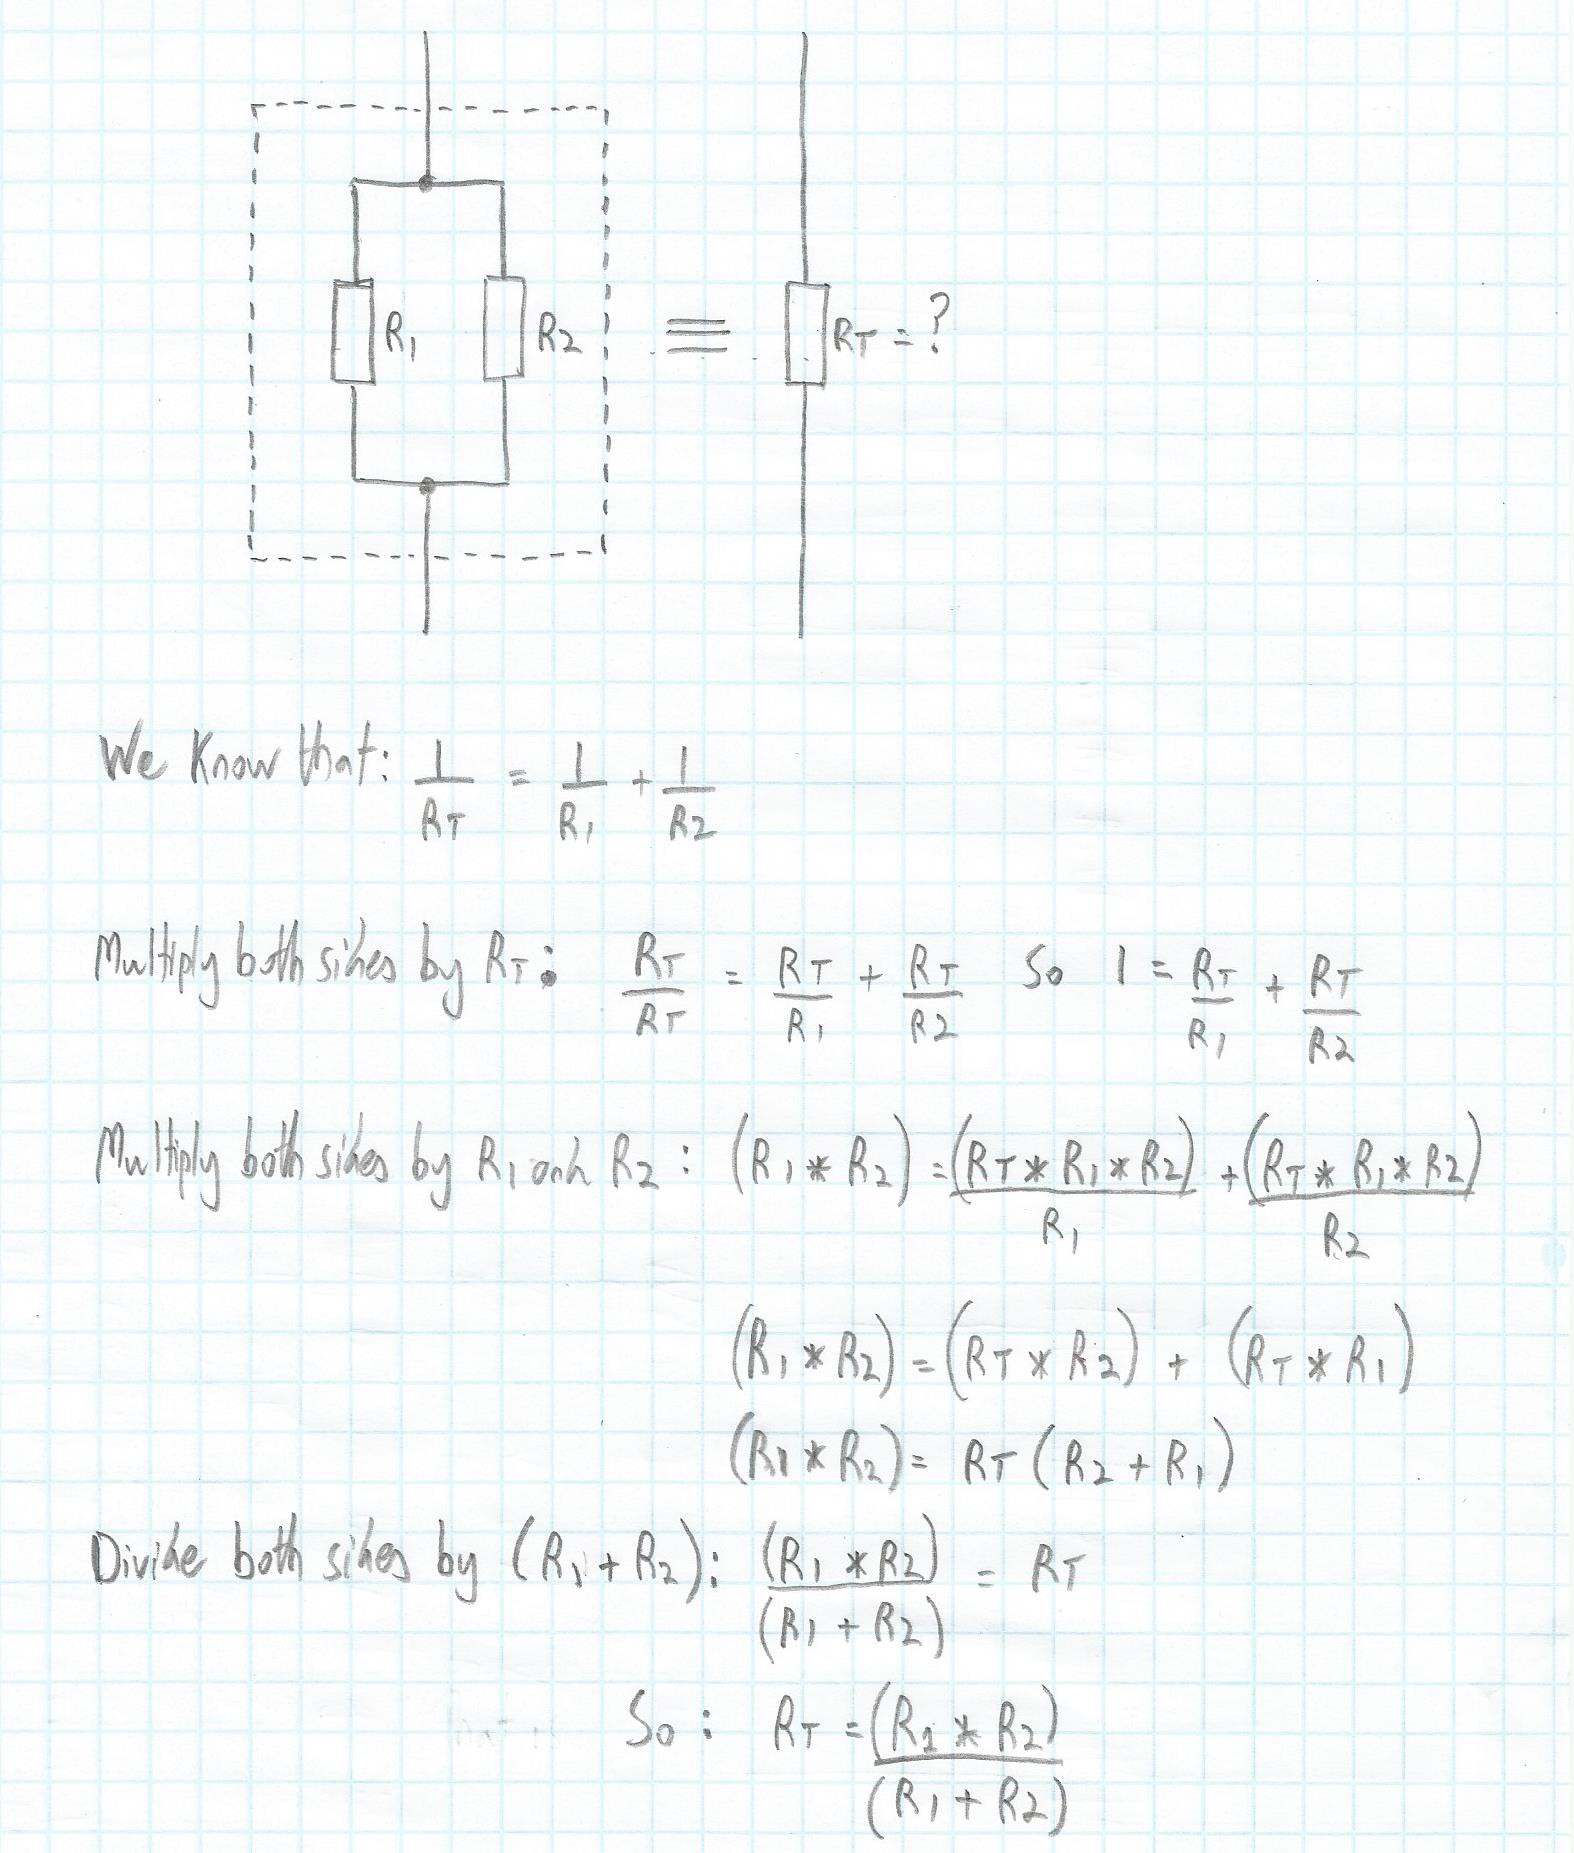 R1 R2 ≡ RT = ?
We Know that: 1/RT = 1/R1 + 1/R2
Multiply both sides by RT: RT/RT = RT/R1 + RT/R2 So 1 = RT/R1 + RT/R2
Multiply both sides by R1 and R2: (R1 * R2) = (RT * R1 * R2)/R1 + (RT * R1 * R2)/R2
(R1 * R2) = (RT * R2) + (RT * R1)
(R1 * R2) = RT (R2 + R1)
Divide both sides by (R1 + R2): (R1 * R2)/(R1 + R2) = RT
So: RT = (R1 * R2)/(R1 + R2)